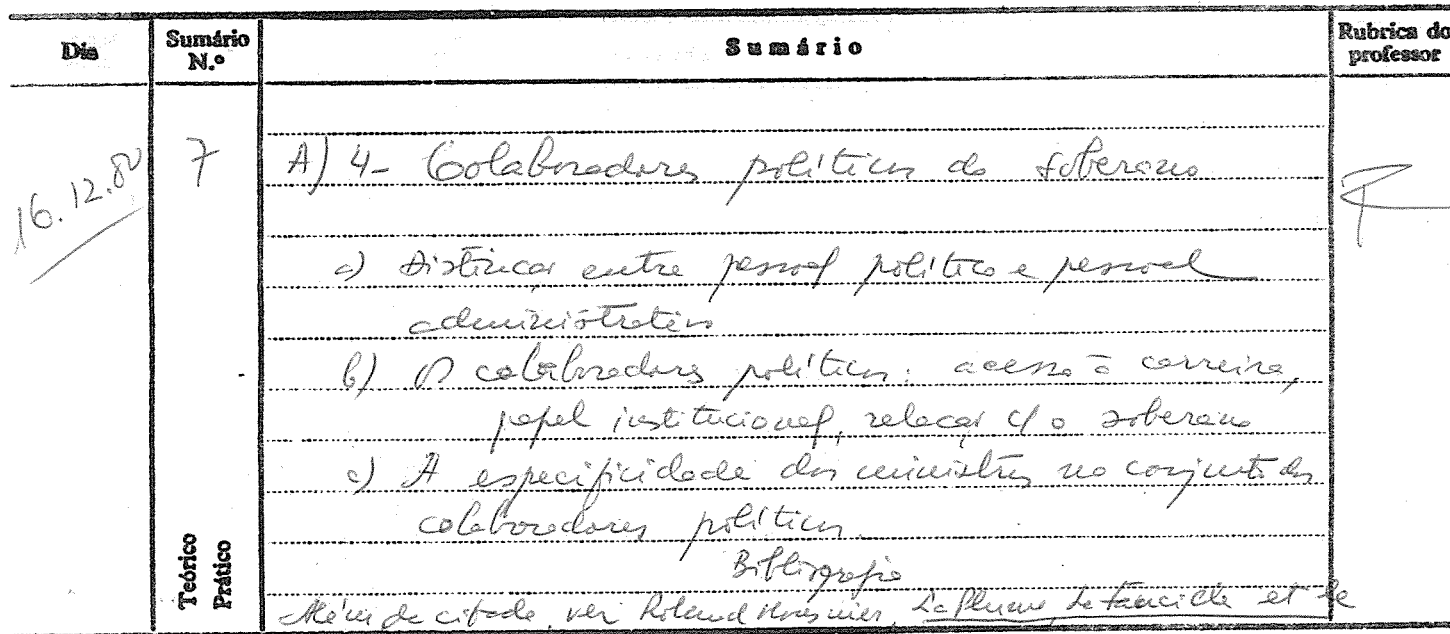 Dia Sumário N.º Sumário Rubrica do professor
16.12.80 7 A) 4- Colaboradores políticos do soberano
a) Distinção entre pessoal político e pessoal
administrativo
b) Os colaboradores políticos: acesso à carreira,
papel institucional, relação c/ o soberano
c) A especificidade dos ministros no conjunto dos
colaboradores políticos.
Teórico
Prático
Bibliografia
Além da citada, ver Roland Mousnier, La Plume, la faucille et le